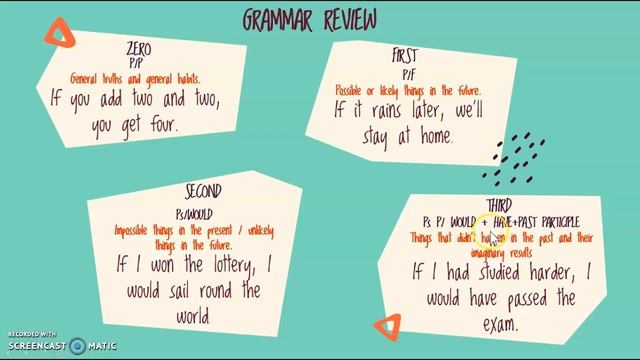 GRAMMAR REVIEW
ZERO
P/P
General truths and general habits.
If you add two and two,
you get four.
FIRST
P/F
Possible or likely things in the future.
If it rains later, we'll
stay at home.
SECOND
Ps/WOULD
Impossible things in the present / unlikely
things in the future.
If I won the lottery, I
would sail round the
world
THIRD
Ps P/ WOULD + HAVE+PAST PARTICIPLE
Things that didn't happen in the past and their
imaginary results
If I had studied harder, I
would have passed the
exam.
RECORDED WITH
SCREENCAST MATIC